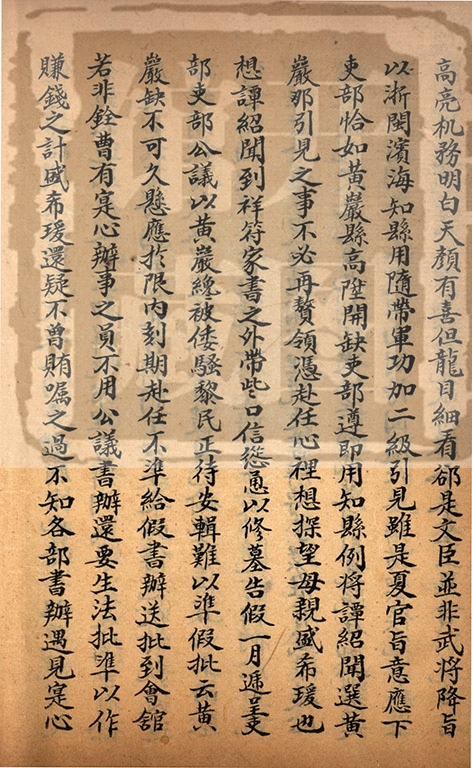 高亮机務明白天顏有喜但龍目細看郤是文臣並非武將降旨
以浙閩濱海知縣用隨帶軍功加二級引見雖是夏官旨意應下
吏部恰如黃嚴縣高陞開缺吏部遵即用知縣例將譚紹聞選黃
嚴那引見之事不必再贅領憑赴任心裡想探望母親盛希瑗也
想譚紹聞到祥符家書之外帶些口信慫恿以修墓告假一月遞呈吏
部吏部公議以黃嚴纔被倭騷黎民正待安輯難以準假批云黃
嚴缺不可久懸應扵限內刻期赴任不準給假書辦送批到會舘
若非銓曹有寔心辦事之員不用公議書辦還要生法批準以作
賺錢之計盛希瑗還疑不曾賄囑之過不知各部書辦遇見寔心